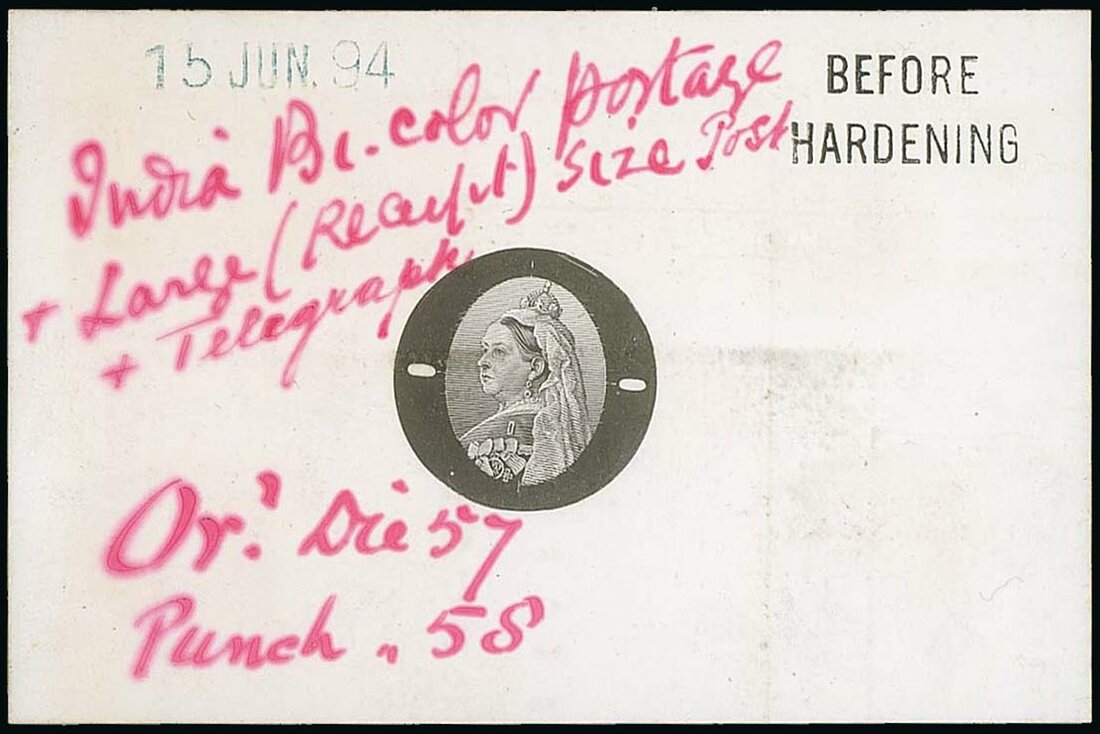 15 JUN. 94
BEFORE
HARDENING
India Bi-color postage
+ Large (Receipt) size Post
+ Telegraph.
Or! Die 57
Punch „ 58